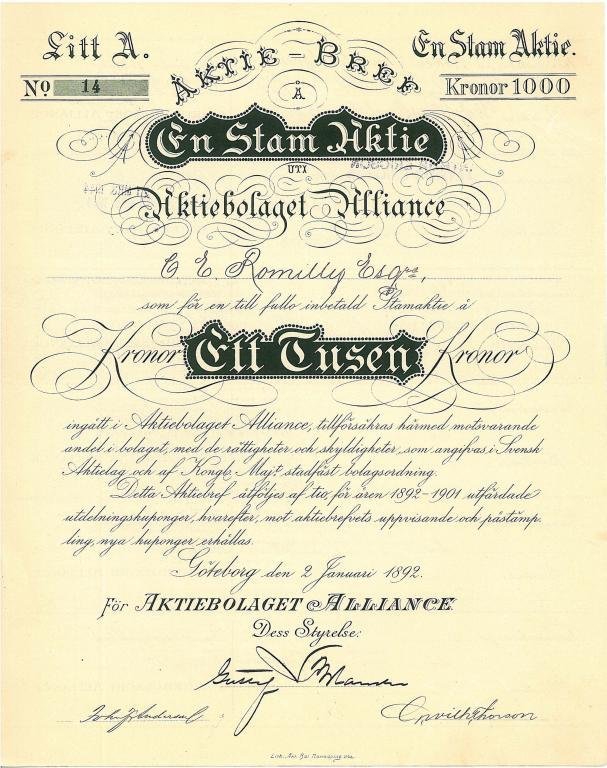 Litt A.
En Stam Aktie.
No 14
Kronor 1000
AKTIE-BREF
Å
En Stam Aktie
UTI
Aktiebolaget Alliance
C. E. Romilly Esqre,
som för en till fullo inbetald Stamaktie å
Kronor Ett Tusen Kronor
ingått i Aktiebolaget Alliance, tillförsäkras härmed motsvarande
andel i bolaget, med de rättigheter och skyldigheter, som angifvas i Svensk
Aktielag och af Kongl. Maj:t stadfäst bolagsordning.
Detta Aktiebref åtföljes af tio, för åren 1892-1901 utfärdade
utdelningskuponger, hvarefter, mot aktiebrefvets uppvisande och påstämp-
ling, nya kuponger erhållas.
Göteborg den 2 Januari 1892.
För AKTIEBOLAGET ALLIANCE.
Dess Styrelse: